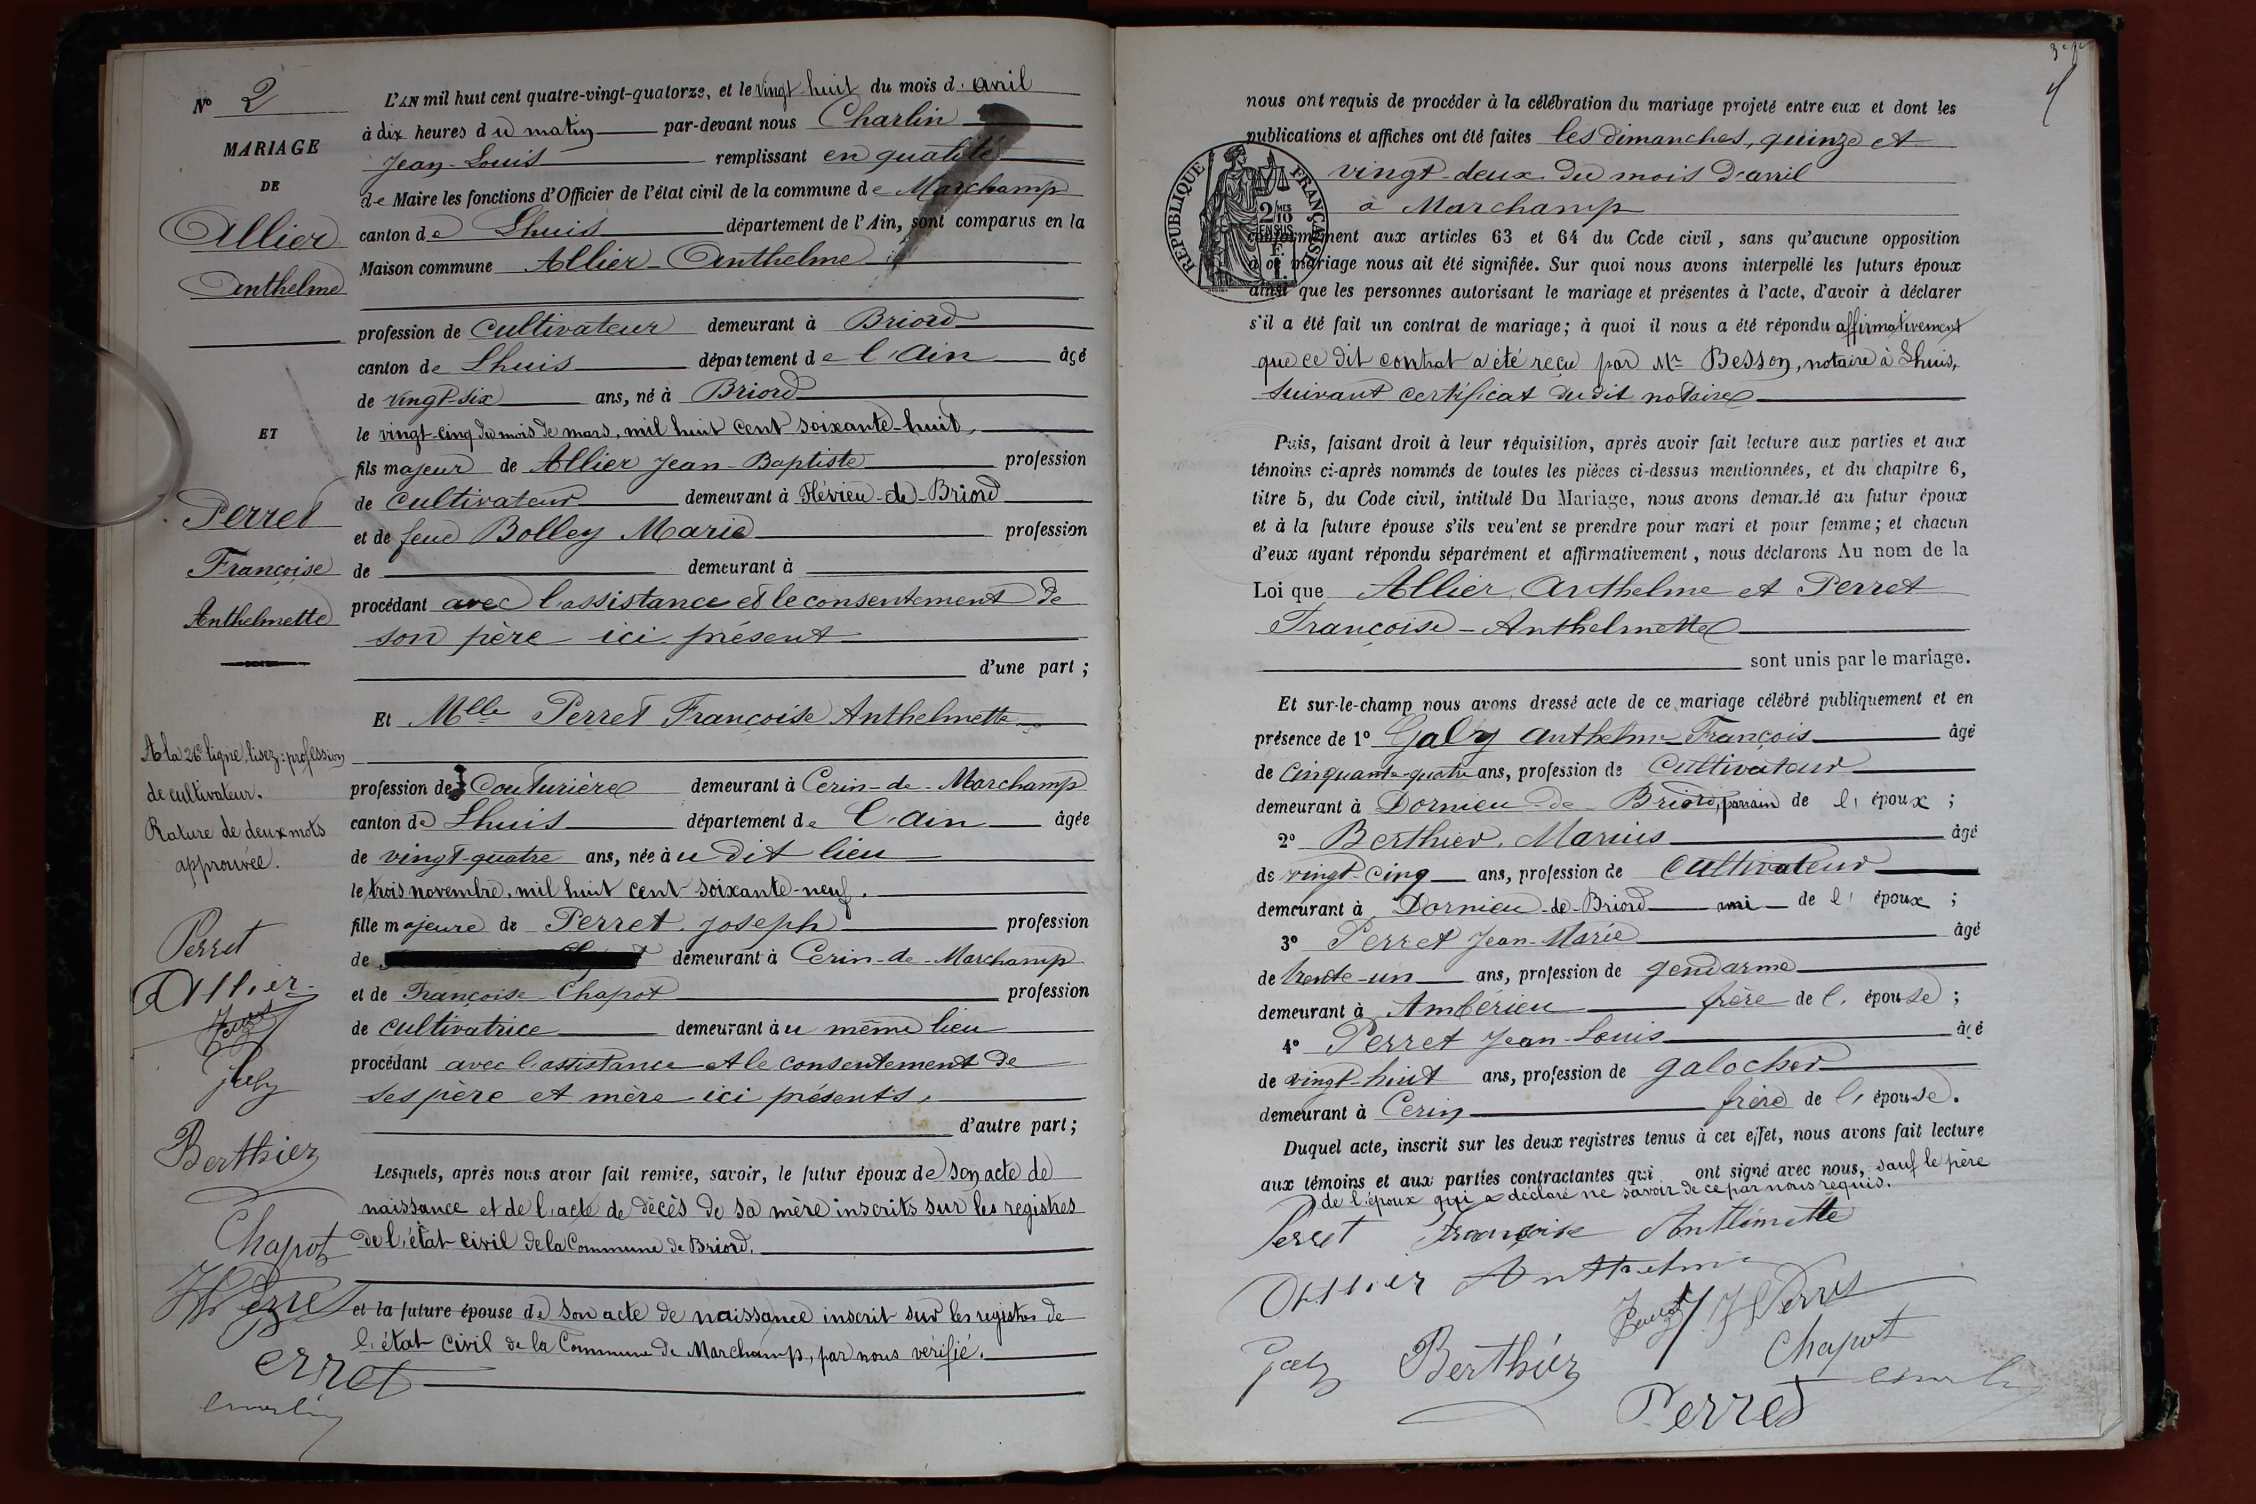 N° 2
MARIAGE
DE
Allier
Anthelme
ET
Perret
Françoise
Anthelmette
A la 26e ligne, lisez: profession
de cultivateur.
Rature de deux mots
approuvée.
Perret
Allier
Perret
Galy
Berthier
Chapot
JL Perret
Perret
Charlin
L'AN mil huit cent quatre-vingt-quatorze, et le vingt-huit du mois d'avril
à dix heures du matin par-devant nous Charlin
Jean-Louis remplissant en qualité
de Maire les fonctions d'Officier de l'état civil de la commune de Marchamp
canton de Lhuis département de l'Ain, sont comparus en la
Maison commune Allier Anthelme
profession de cultivateur demeurant à Briord
canton de Lhuis département de l'Ain âgé
de vingt-six ans, né à Briord
le vingt-cinq du mois de mars, mil huit cent soixante-huit,
fils majeur de Allier Jean-Baptiste profession
de cultivateur demeurant à Flévieu-de-Briord
et de feue Bolley Marie profession
de demeurant à
procédant avec l'assistance et le consentement de
son père ici présent
d'une part ;
Et Mlle Perret Françoise Anthelmette
profession de Couturière demeurant à Cerin-de-Marchamp
canton de Lhuis département de l'Ain âgée
de vingt-quatre ans, née au dit lieu
le trois novembre, mil huit cent soixante-neuf.
fille majeure de Perret Joseph profession
de demeurant à Cerin-de-Marchamp
et de Françoise Chapot profession
de cultivatrice demeurant au même lieu
procédant avec l'assistance et le consentement de
ses père et mère ici présents,
d'autre part ;
Lesquels, après nous avoir fait remise, savoir, le futur époux de son acte de
naissance et de l'acte de décès de sa mère inscrits sur les registres
de l'état civil de la Commune de Briord.
et la future épouse de son acte de naissance inscrit sur les registres de
l'état civil de la Commune de Marchamp, par nous vérifié.
nous ont requis de procéder à la célébration du mariage projeté entre eux et dont les
publications et affiches ont été faites les dimanches, quinze et
vingt-deux du mois d'avril
à Marchamp
RÉPUBLIQUE FRANÇAISE
2/10 EN SUS
1 F.
conformément aux articles 63 et 64 du Code civil, sans qu'aucune opposition
à ce mariage nous ait été signifiée. Sur quoi nous avons interpellé les futurs époux
ainsi que les personnes autorisant le mariage et présentes à l'acte, d'avoir à déclarer
s'il a été fait un contrat de mariage; à quoi il nous a été répondu affirmativement
que ce dit contrat a été reçu par Me Besson, notaire à Lhuis,
suivant certificat du dit notaire
Puis, faisant droit à leur réquisition, après avoir fait lecture aux parties et aux
témoins ci-après nommés de toutes les pièces ci-dessus mentionnées, et du chapitre 6,
titre 5, du Code civil, intitulé Du Mariage, nous avons demandé au futur époux
et à la future épouse s'ils veulent se prendre pour mari et pour femme; et chacun
d'eux ayant répondu séparément et affirmativement, nous déclarons Au nom de la
Loi que Allier, Anthelme et Perret
Françoise-Anthelmette
sont unis par le mariage.
Et sur-le-champ nous avons dressé acte de ce mariage célébré publiquement et en
présence de 1° Galy Anthelme François âgé
de cinquante-quatre ans, profession de cultivateur
demeurant à Dornieu-de-Briord, parrain de l'époux ;
2° Berthier, Marius âgé
de vingt-cinq ans, profession de cultivateur
demeurant à Dornieu-de-Briord ami de l'époux ;
3° Perret Jean-Marie âgé
de trente-un ans, profession de gendarme
demeurant à Ambérieu frère de l'épouse ;
4° Perret Jean-Louis âgé
de vingt-huit ans, profession de galocher
demeurant à Cerin frère de l'épouse.
Duquel acte, inscrit sur les deux registres tenus à cet effet, nous avons fait lecture
aux témoins et aux parties contractantes qui ont signé avec nous, sauf le père
de l'époux qui a déclaré ne savoir de ce par nous requis.
Perret Françoise Anthelmette
Allier Anthelme
Perret JL Perret
Galy Berthier Chapot
Perret Charlin